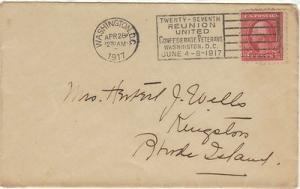 WASHINGTON, D.C.
APR 28
12 30 AM
1917
TWENTY-SEVENTH
REUNION
UNITED
CONFEDERATE VETERANS
WASHINGTON, D.C.
JUNE 4-8-1917
Mrs. Herbert J. Wells
Kingston
Rhode Island.